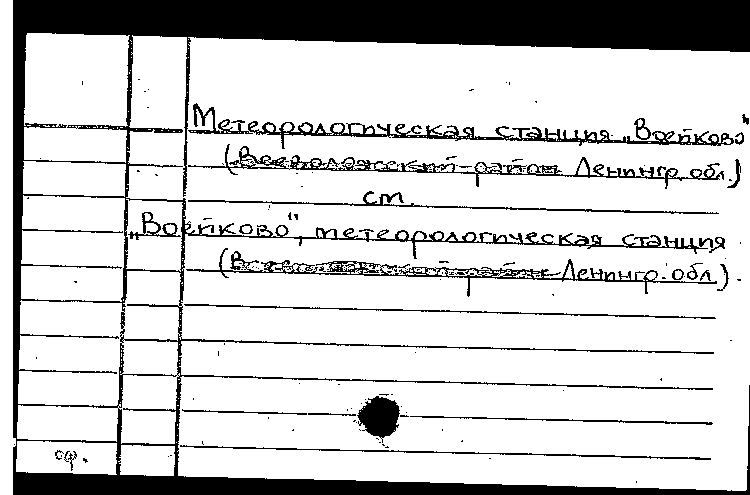 Метеорологическая станция „Воейково"
(Всеволожский район Ленингр. обл.)
см.
„Воейково", метеорологическая станция
(Всеволожский район Ленингр. обл.).